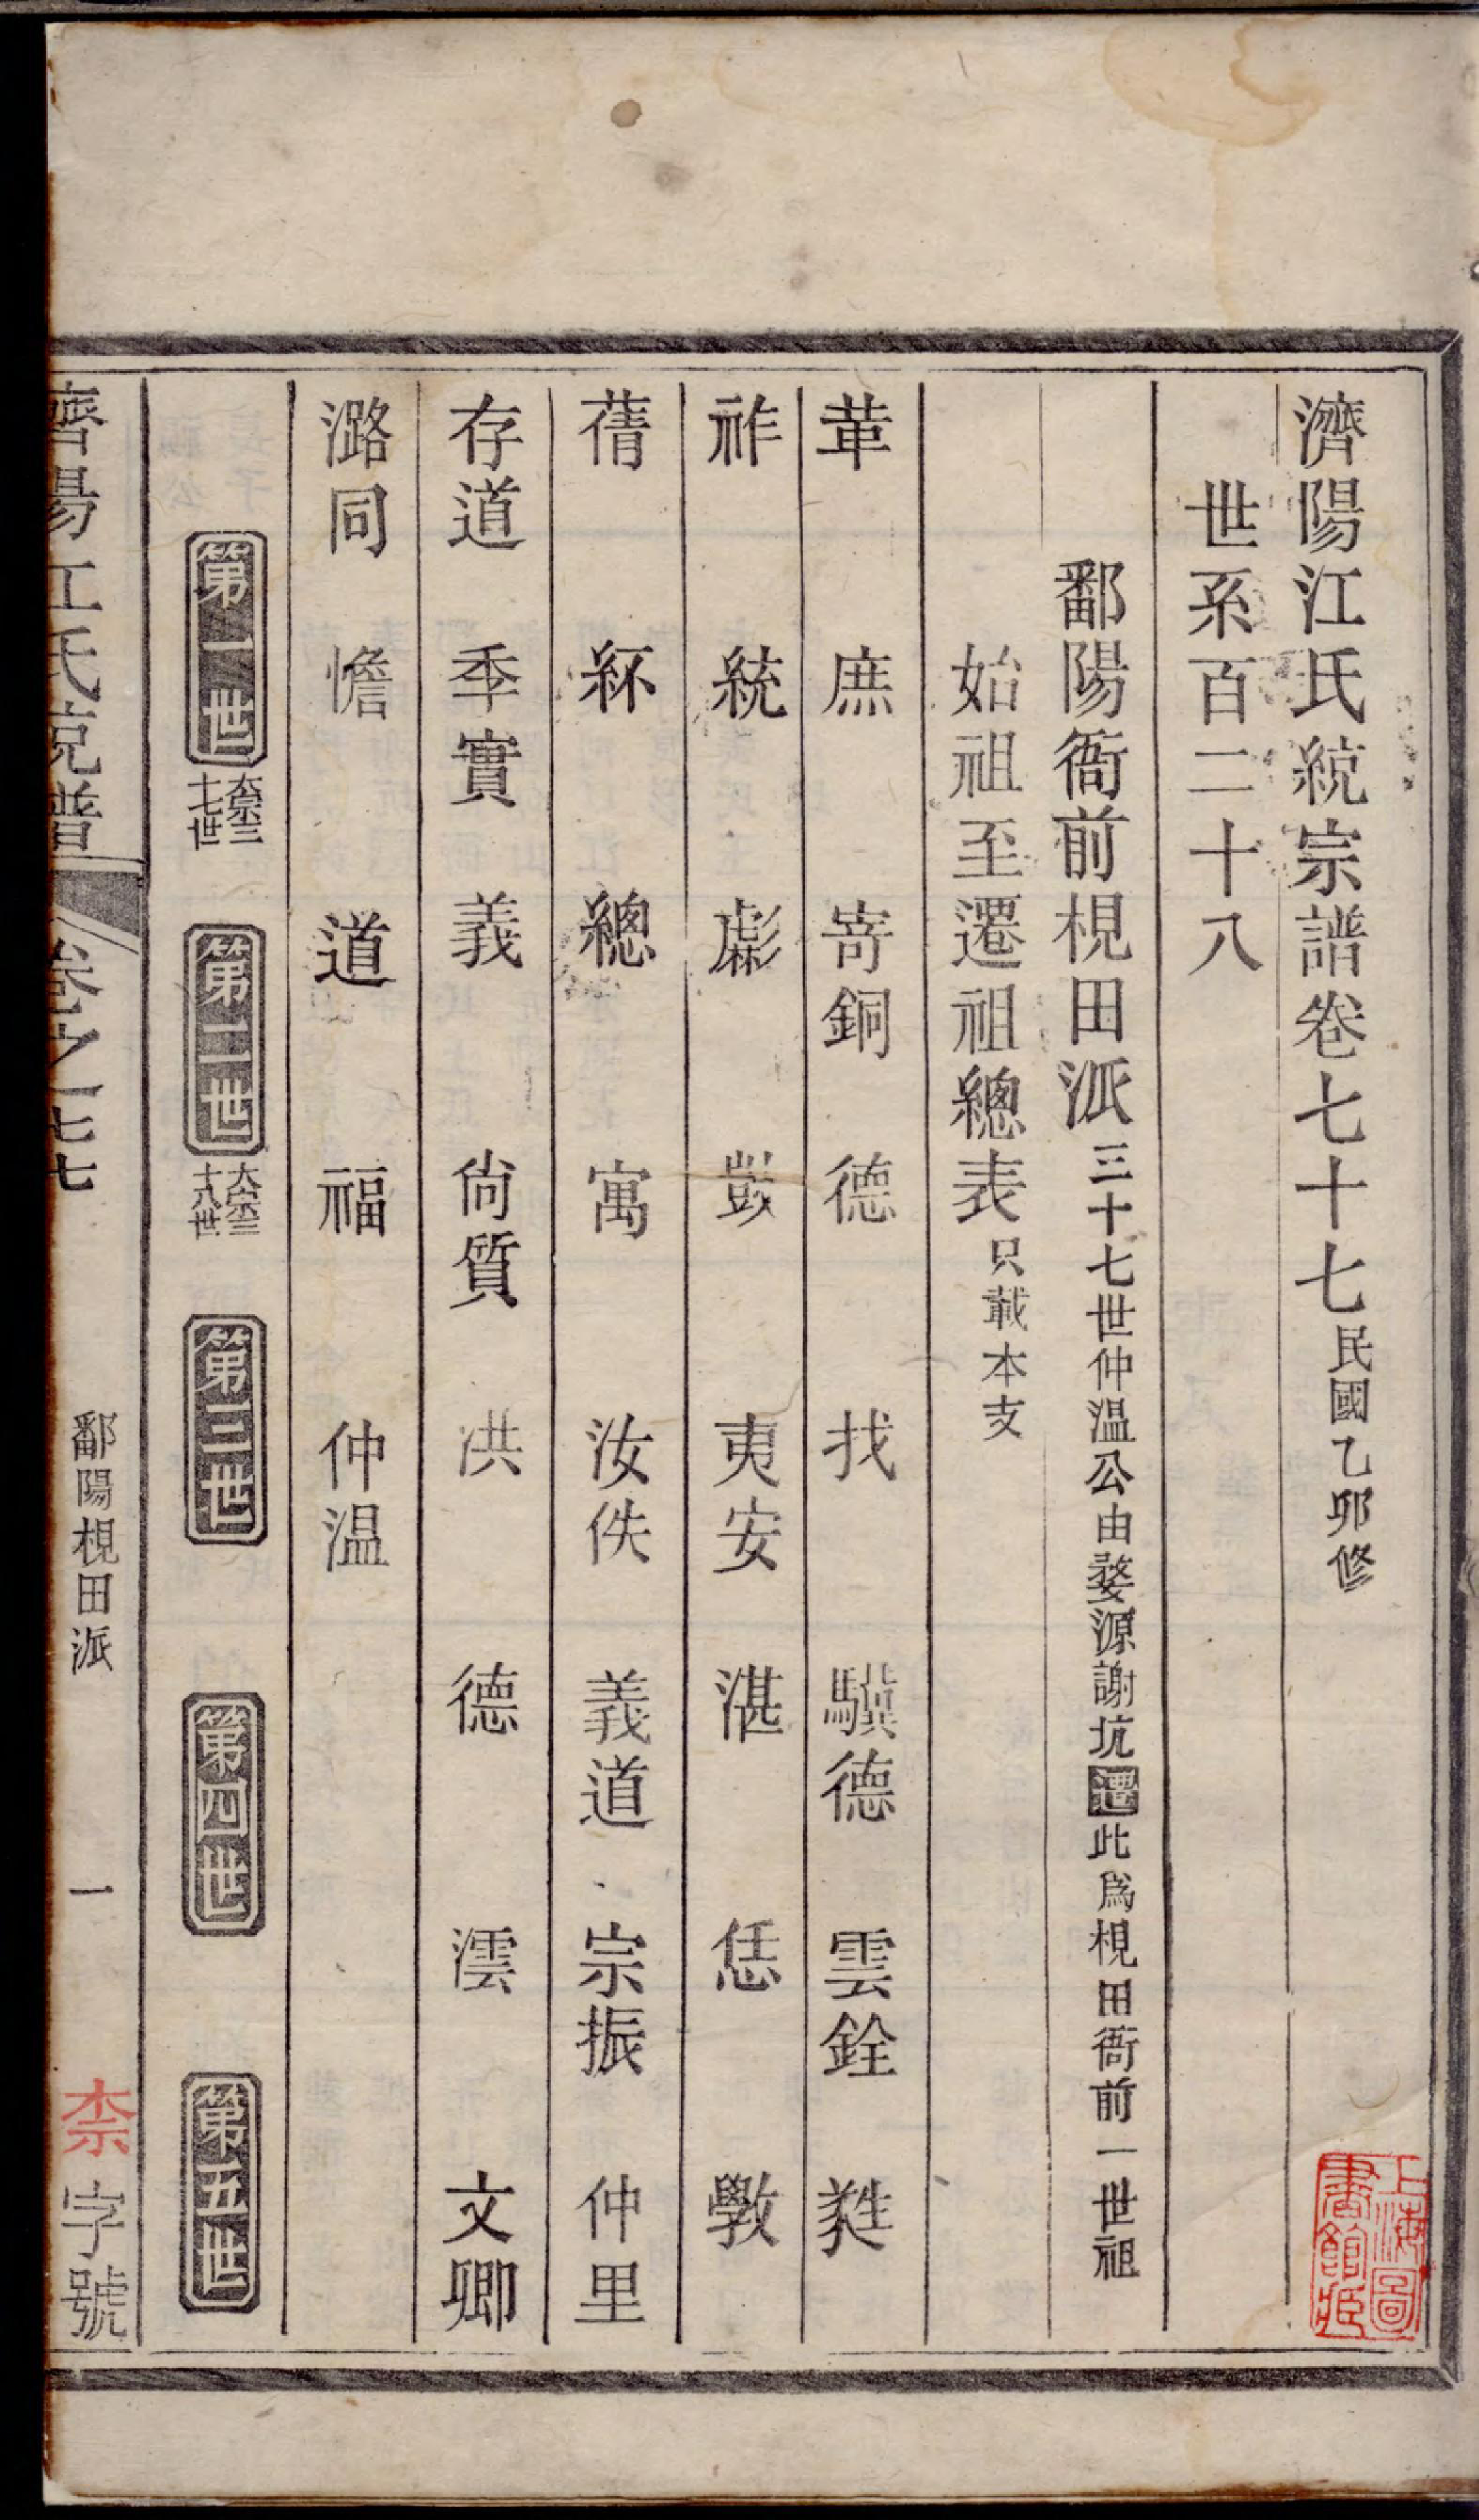 濟陽江氏統宗譜卷七十七民國乙卯修
世系百二十八
鄱陽衙前梘田派三十七世仲温公由婺源謝坑遷此為梘田衙前一世祖
始祖至遷祖總表只載本支
革 庶 嵜銅 德 找 驥德 雲銓 甤
祚 統 彪 敳 夷安 湛 恁 斆
蒨 紑 總 寓 汝佚 義道 宗振 仲里
存道 季實 義 尙質 洪 德 澐 文卿
潞同 憺 道 福 仲温
第一世 大宗三十七世 第二世 大宗三十八世 第三世 第四世 第五世
濟陽江氏宗譜 卷之七七 鄱陽梘田派 一 柰字號
上海圖書館藏